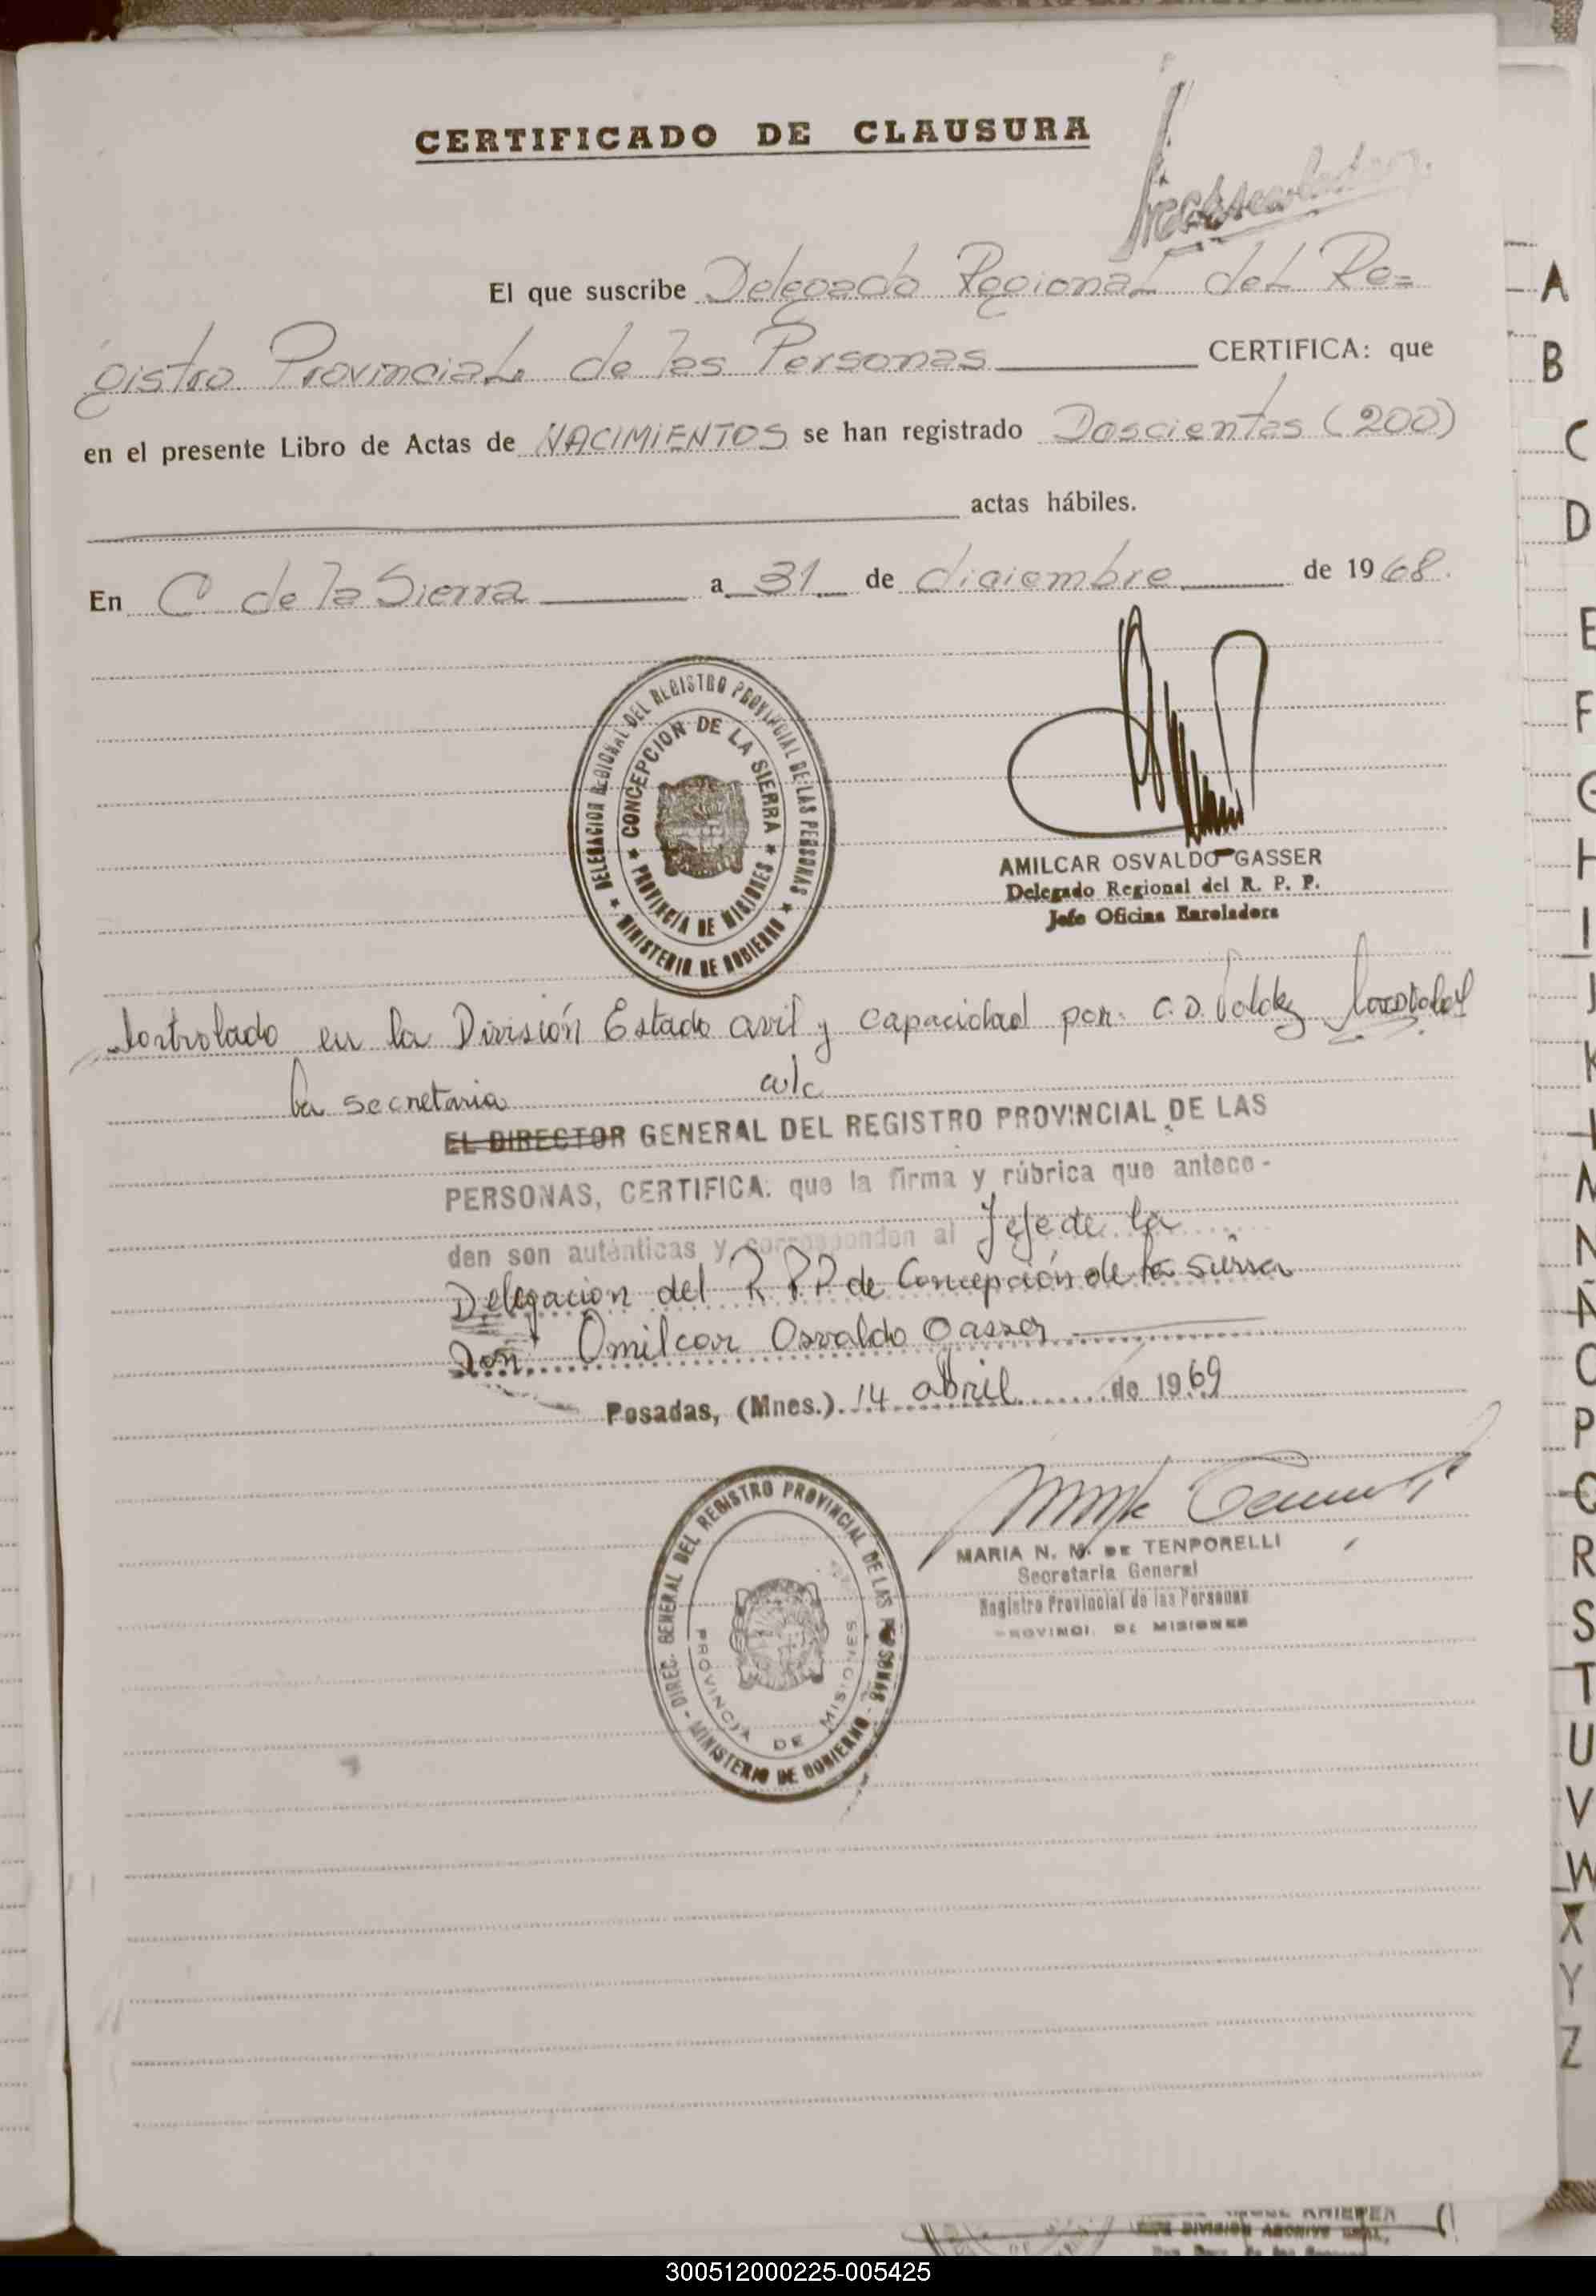 CERTIFICADO DE CLAUSURA
El que suscribe Delegado Regional del Re=
gistro Provincial de las Personas CERTIFICA: que
en el presente Libro de Actas de NACIMIENTOS se han registrado Doscientas (200)
actas hábiles.
En C. de la Sierra a 31 de diciembre de 1968.
DELEGACION REGIONAL DEL REGISTRO PROVINCIAL DE LAS PERSONAS
MINISTERIO DE GOBIERNO
CONCEPCION DE LA SIERRA
PROVINCIA DE MISIONES
AMILCAR OSVALDO GASSER
Delegado Regional del R. P. P.
Jefe Oficina Enroladora
Controlado en la División Estado civil y capacidad por: C. D. Valdez
la secretaria a/c
EL DIRECTOR GENERAL DEL REGISTRO PROVINCIAL DE LAS
PERSONAS, CERTIFICA: que la firma y rúbrica que antece-
den son auténticas y corresponden al Jefe de la
Delegacion del R P P de Concepción de la Sierra
Don Amilcar Osvaldo Gasser
Posadas, (Mnes.) 14 abril de 1969
DIREC. GENERAL DEL REGISTRO PROVINCIAL DE LAS PERSONAS
MINISTERIO DE GOBIERNO
PROVINCIA DE MISIONES
MARIA N. M. DE TENPORELLI
Secretaria General
Registro Provincial de las Personas
PROVINCI. DE MISIONES
A
B
C
D
E
F
G
H
I
J
K
L
M
N
Ñ
O
P
Q
R
S
T
U
V
W
X
Y
Z
DIVISION ARCHIVO
300512000225-005425